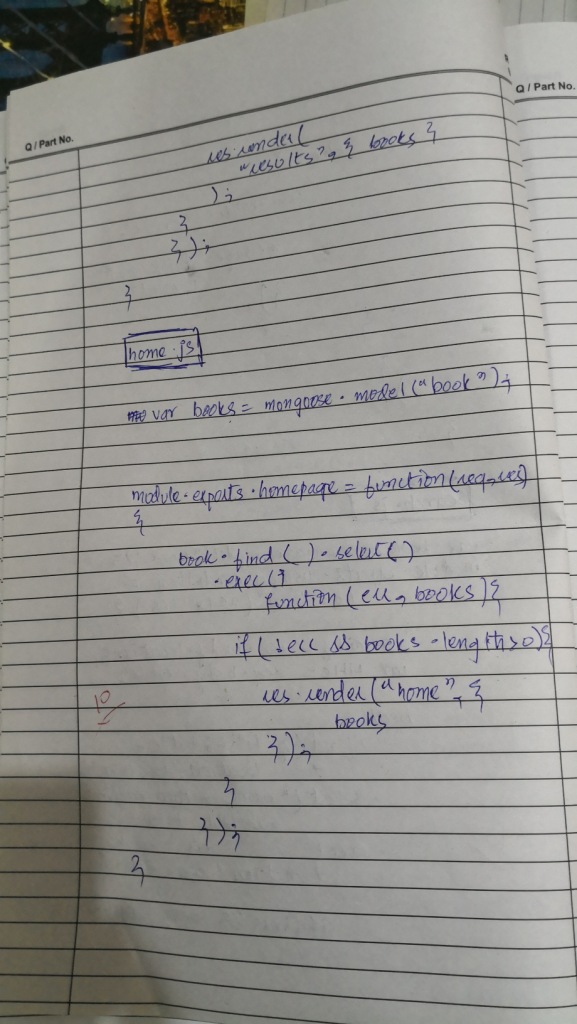 Q / Part No.
Q / Part No.
res.render(
"results", { books }
);
}
});
}
home.js
var books = mongoose.model("book");
module.exports.homepage = function(req, res)
{
book.find().select()
.exec(
function (err, books){
if( !err && books.length>0){
res.render("home", {
books
});
}
});
}
10